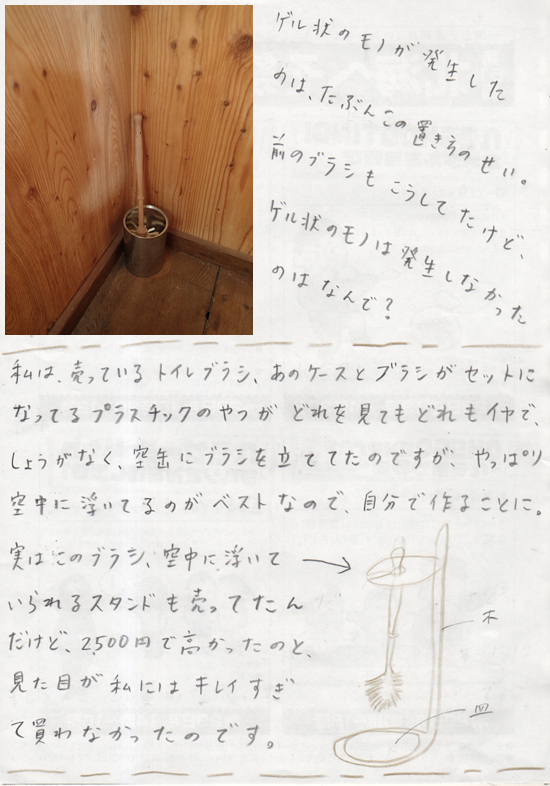 ゲル状のモノが発生した
のは、たぶんこの置き方のせい。
前のブラシもこうしてたけど、
ゲル状のモノは発生しなかった
のはなんで？
私は、売っているトイレブラシ、あのケースとブラシがセットに
なってるプラスチックのやつがどれを見てもどれもイヤで、
しょうがなく、空缶にブラシを立ててたのですが、やっぱり
空中に浮いてるのがベストなので、自分で作ることに。
実はこのブラシ、空中に浮いて
いられるスタンドも売ってたん
だけど、2,500円で高かったのと、
見た目が私にはキレイすぎ
て買わなかったのです。
木
皿